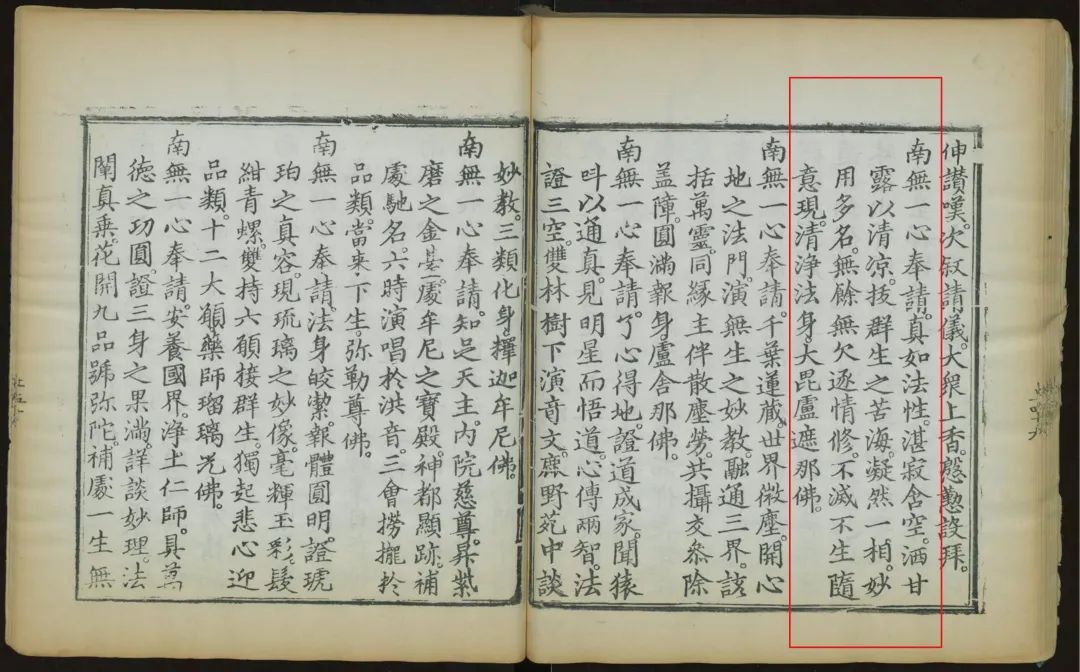 伸讚嘆。次叙請儀。大衆上香。慇懃設拜。
南無一心奉請。真如法性。湛寂含空。洒甘
露以清凉。拔群生之苦海。凝然一相。妙
用多名。無餘無欠逐情修。不滅不生隨
意現。清浄法身。大毘盧遮那佛。
南無一心奉請。千葉蓮蔵。世界微塵。開心
地之法門。演無生之妙教。融通三界。該
括萬靈。同緣主伴散塵勞。共攝交叅除
盖障。圓滿報身。盧舍那佛。
南無一心奉請。了心得地。證道成家。聞猿
呌以通真。見明星而悟道。心傳兩智。法
證三空。雙林樹下演竒文。鹿野苑中談
妙教。三類化身。釋迦牟尼佛。
南無一心奉請。知足天主。内院慈尊。昇紫
磨之金䑓。處牟尼之寶殿。神都顯跡。補
處馳名。六時演唱於洪音。三會撈攏於
品類。當来下生。弥勒尊佛。
南無一心奉請。法身皎潔。報體圓明。證琥
珀之真容。現琉璃之妙像。毫輝玉彩。髮
紺青螺。雙持六願接群生。獨起悲心迎
品類。十二大願。藥師瑠璃光佛。
南無一心奉請。安養國界。浄土仁師。具萬
徳之功圓。證三身之果满。詳談妙理。法
闡真乗。花開九品號弥陀。補處一生無